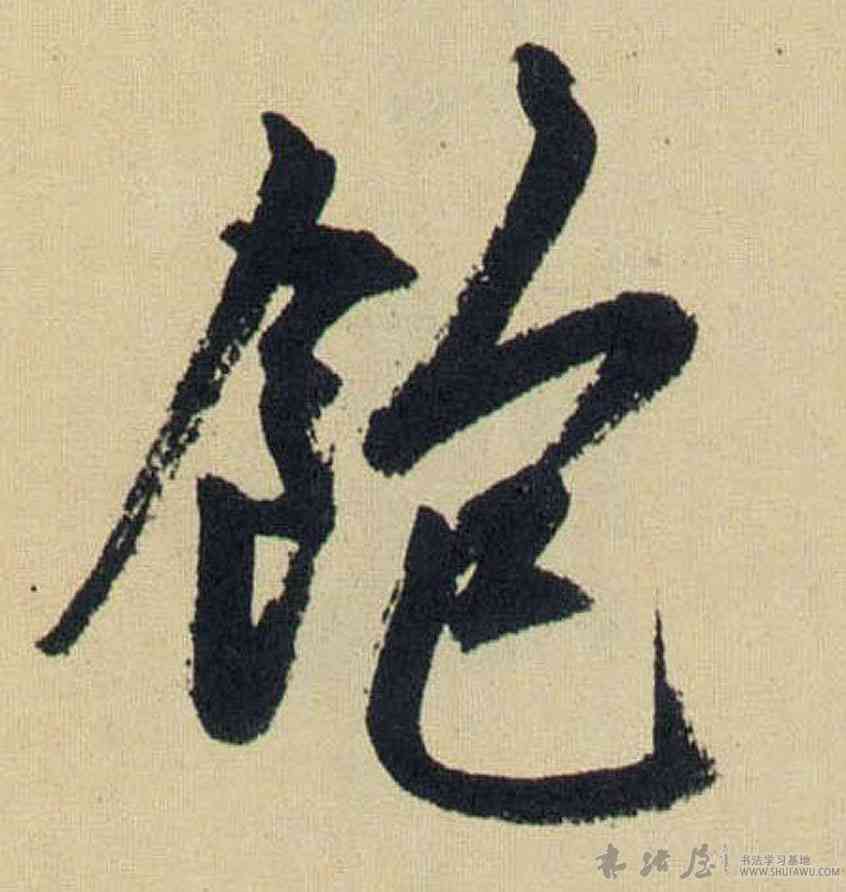 飽
书法屋
书法学习基地
WWW.SHUFAWU.COM